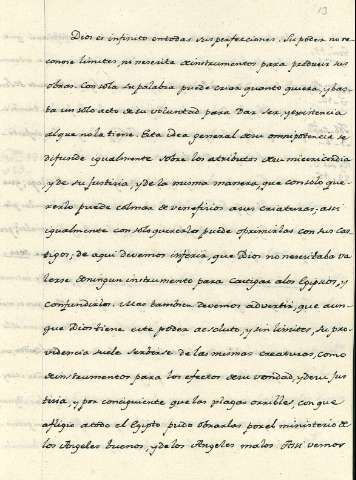 13
Dios es infinito entodas sus perfecciones. Su poder no re-
conoce limites, ni necesita deinstrumentos para producir sus
obras. Con sola su palabra puede criar quanto quiera, y bas-
ta un solo acto de su voluntad para dar ser, y existencia
alque no la tiene. Esta idea general desu omnipotencia se
difunde igualmente sobre los atributos desu misericordia
y de su Justicia, y de la misma manera, que con solo que-
rerlo puede colmar de veneficios asus criaturas; assi
igualmente con solo quererlo puede oprimirlas con sus cas-
tigos; de aqui devemos inferir, que Dios no necesitaba va-
lerse deningun instrumento para castigar alos Egipcios, y
confundirlos. Mas tambien devemos advertir, que aun-
que Dios tiene este poder absoluto, y sin limites, su pro-
videncia suele servirse de las mismas creaturas, como
deinstrumentos para los efectos desu vondad, y desu Jus-
ticia, y por conciguiente que las plagas orribles, con que
afligio atodo el Egipto pudo obrarlas por el ministerio de
los Angeles buenos, y de los Angeles malos. Assi vemos